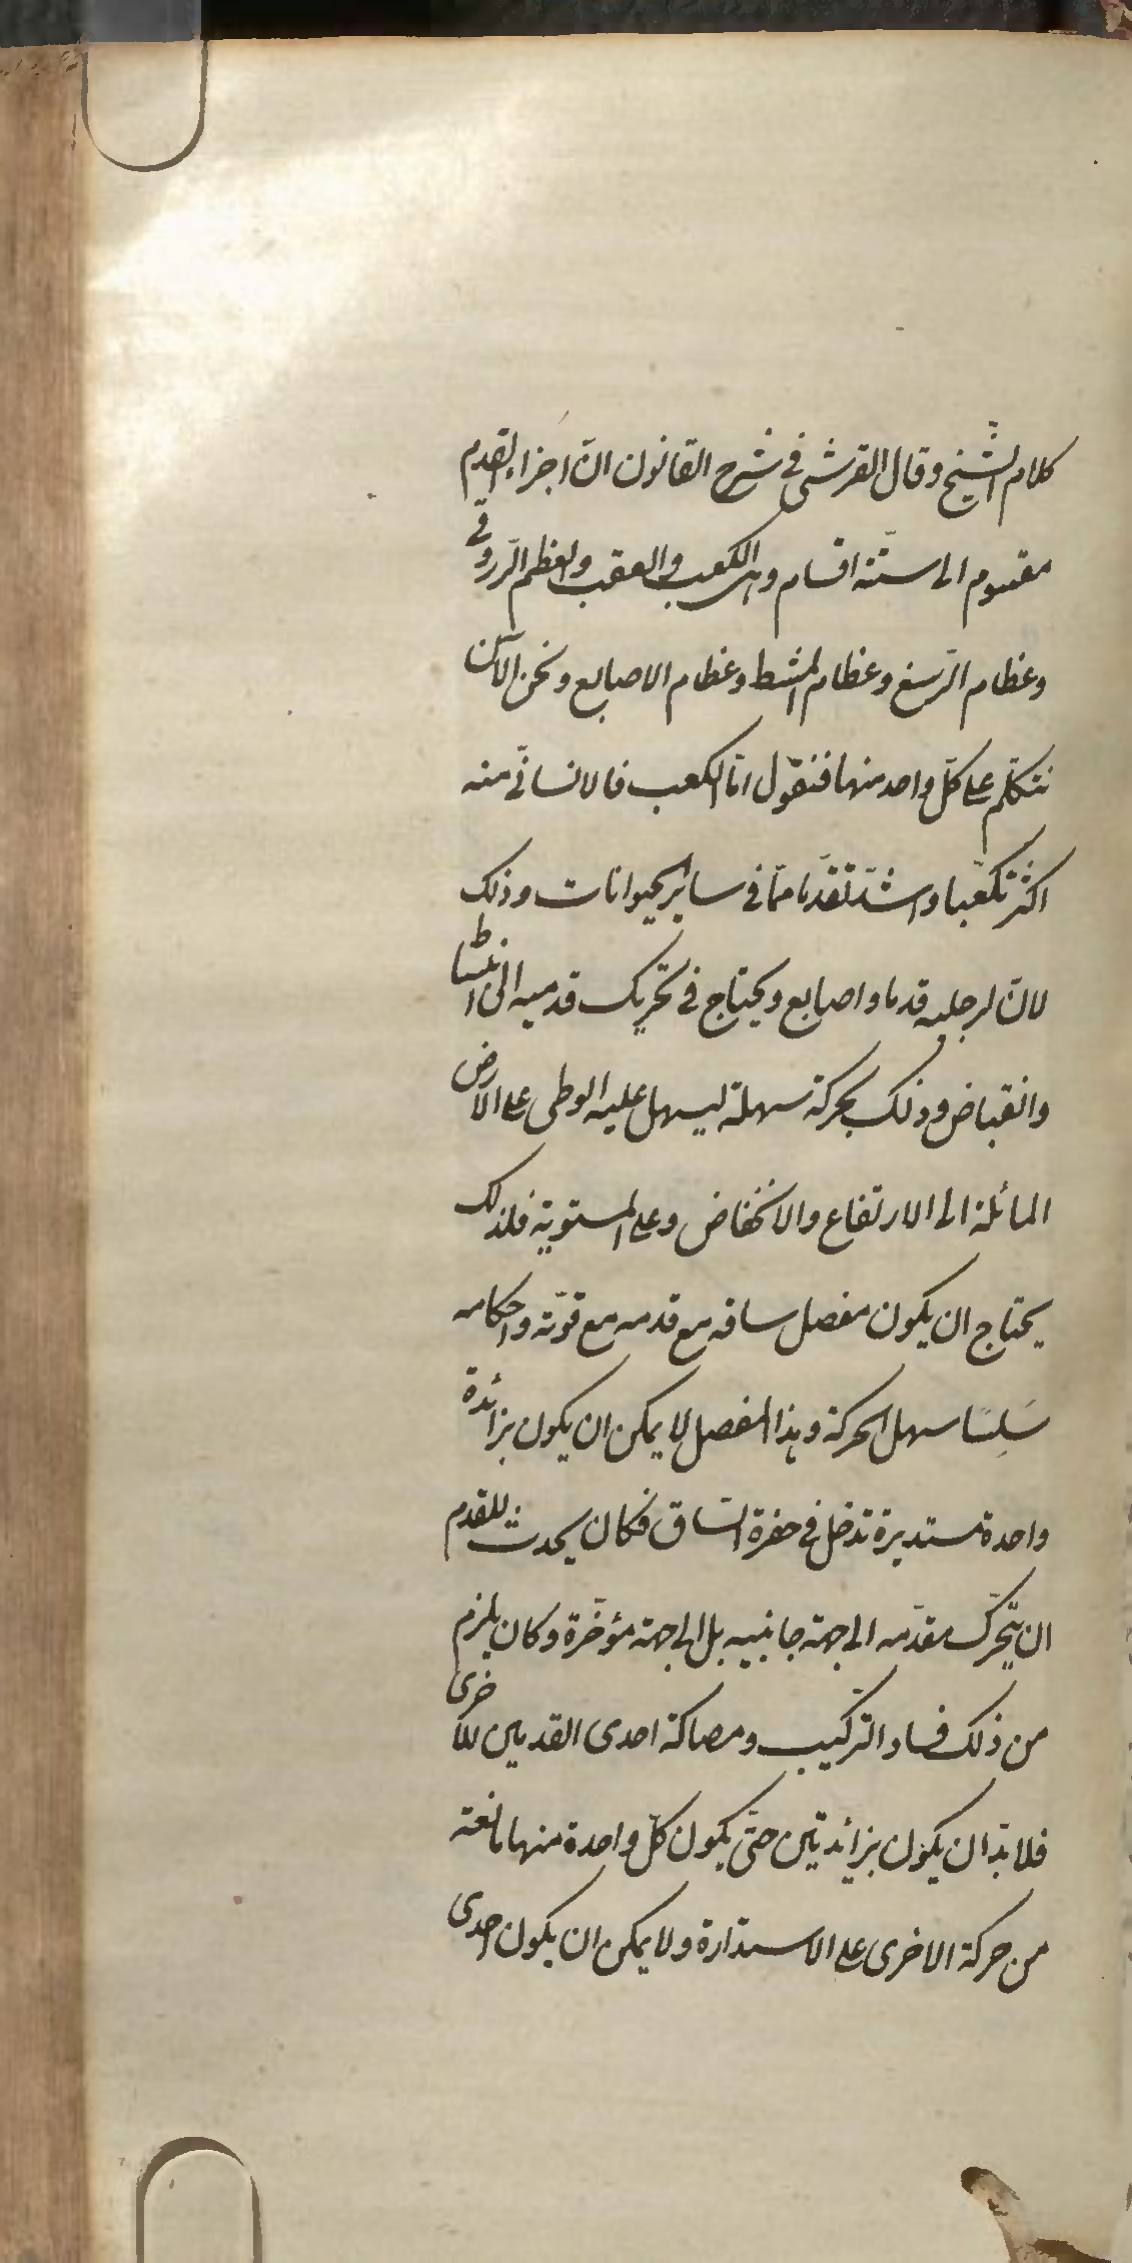 كلام الشيخ وقال القرشى فى شرح القانون انّ اجزاء القدم
مقسوم الى ستّة اقسام وهى الكعب والعقب والعظم الزّروقى
وعظام الرّسغ وعظام المشط وعظام الاصابع ونحن الآن
نتكلّم على كلّ واحد منها فنقول امّا الكعب فالانسانّى منه
اكثر تكعّبا واشدّ تقدّما ممّا فى ساير الحيوانات وذلك
لانّ لرجليه قدما واصابع ويحتاج فى تحريك قدميه الى انبساط
وانقباض وذلك بحركة سهلة ليسهل عليه الوطى على الارض
المائلة الى الارتفاع والانخفاض وعلى المستوية فلذلك
يحتاج ان يكون مفصل ساقه مع قدمه مع قوّته واحكامه
سَلِسًا سهل الحركة وهذا المفصل لا يمكن ان يكون بزائدة
واحدة مستديرة تدخل فى حفرة السّاق فكان يحدث للقدم
ان يتّحرّك مقدّمه الى جهة جانبيه بل الى جهة مؤخّرة وكان يلزم
من ذلك فساد التركّيب ومصاكة احدى القدمين للاخرى
فلا بدّ ان يكون بزائدتين حتّى يكون كلّ واحدة منهما مانعة
من حركة الاخرى على الاستدارة ولا يمكن ان يكون احدى